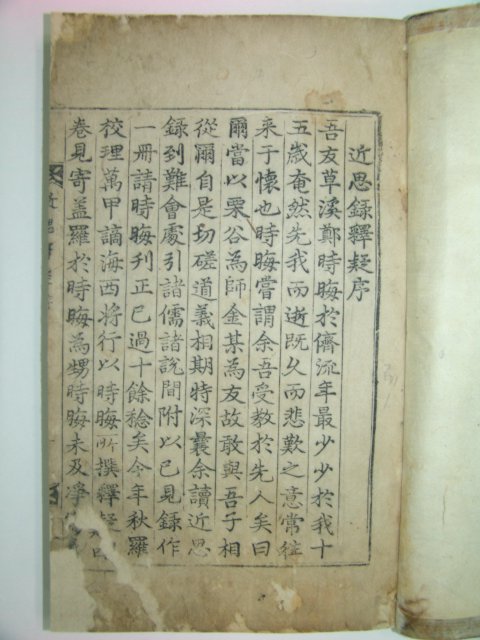 近思録釋疑序
吾友草溪鄭時晦於儕流年最少少於我十
五歲奄然先我而逝既久而悲歎之意常徃
来于懷也時晦嘗謂余吾受教於先人矣曰
爾當以栗谷為師金某為友故敢與吾子相
從爾自是切磋道義相期特深曩余讀近思
録到難會處引諸儒諸說間附以己見録作
一册請時晦刋正已過十餘稔矣今年秋羅
校理萬甲謫海西将行以時晦所撰釋疑
卷見寄盖羅於時晦為甥時晦未及淨